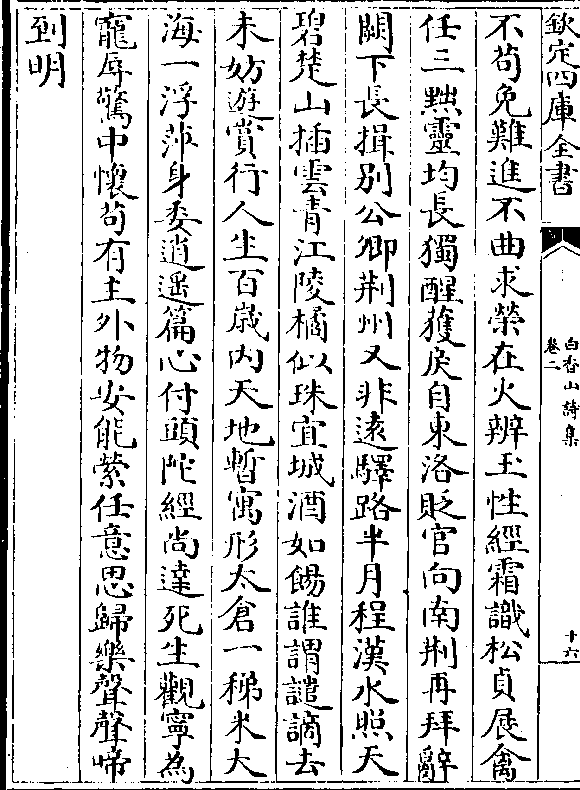 欽定四庫全書
白香山詩集
卷二
十六
不苟免難進不曲求榮在火辨玉性經霜識松貞展禽
任三黜靈均長獨醒獲戾自東洛貶官向南荆再拜辭
闕下長揖别公卿荆州又非遠驛路半月程漢水照天
碧楚山插雲青江陵橘似珠宜城酒如餳誰謂譴謫去
未妨遊賞行人生百歲内天地暫寓形太倉一稊米大
海一浮萍身委逍遥篇心付頭陀經尚達死生觀寧為
寵辱驚中懷苟有主外物安能縈任意思歸樂聲聲啼
到明